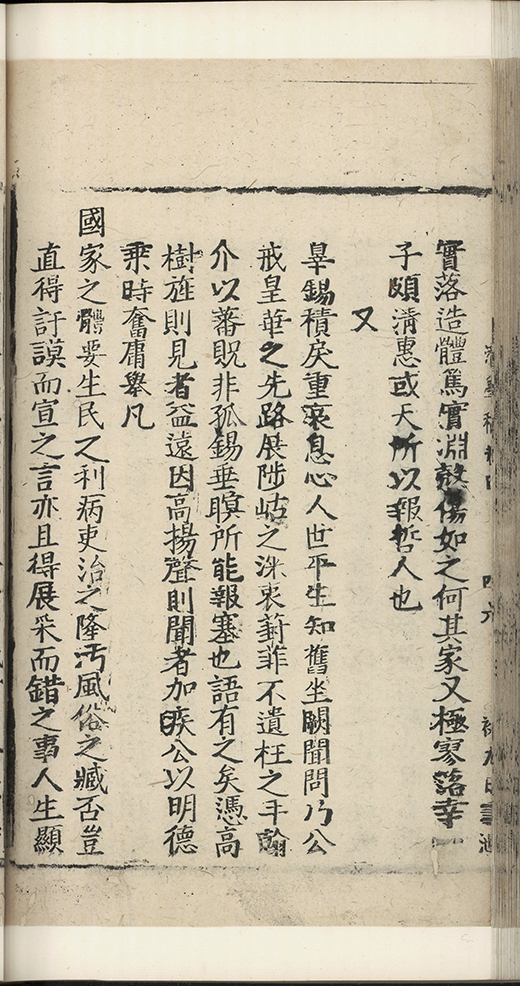 實落造體篤實淵懿傷如之何其家又極寥落幸一
子頗淸惠或天所以報哲人也
又
辠錫積戾重衰息心人世平生知舊坐闕聞問乃公
戒皇華之先路展陟岵之洙衷葑菲不遺枉之手翰
介以蕃貺非孤錫垂瞑所能報塞也語有之矣憑高
樹旌則見者益遠因高揚聲則聞者加疾公以明德
乘時奮庸舉凡
國家之體要生民之利病吏治之隆汚風俗之臧否豈
直得訏謨而宣之言亦且得展采而錯之事人生顯